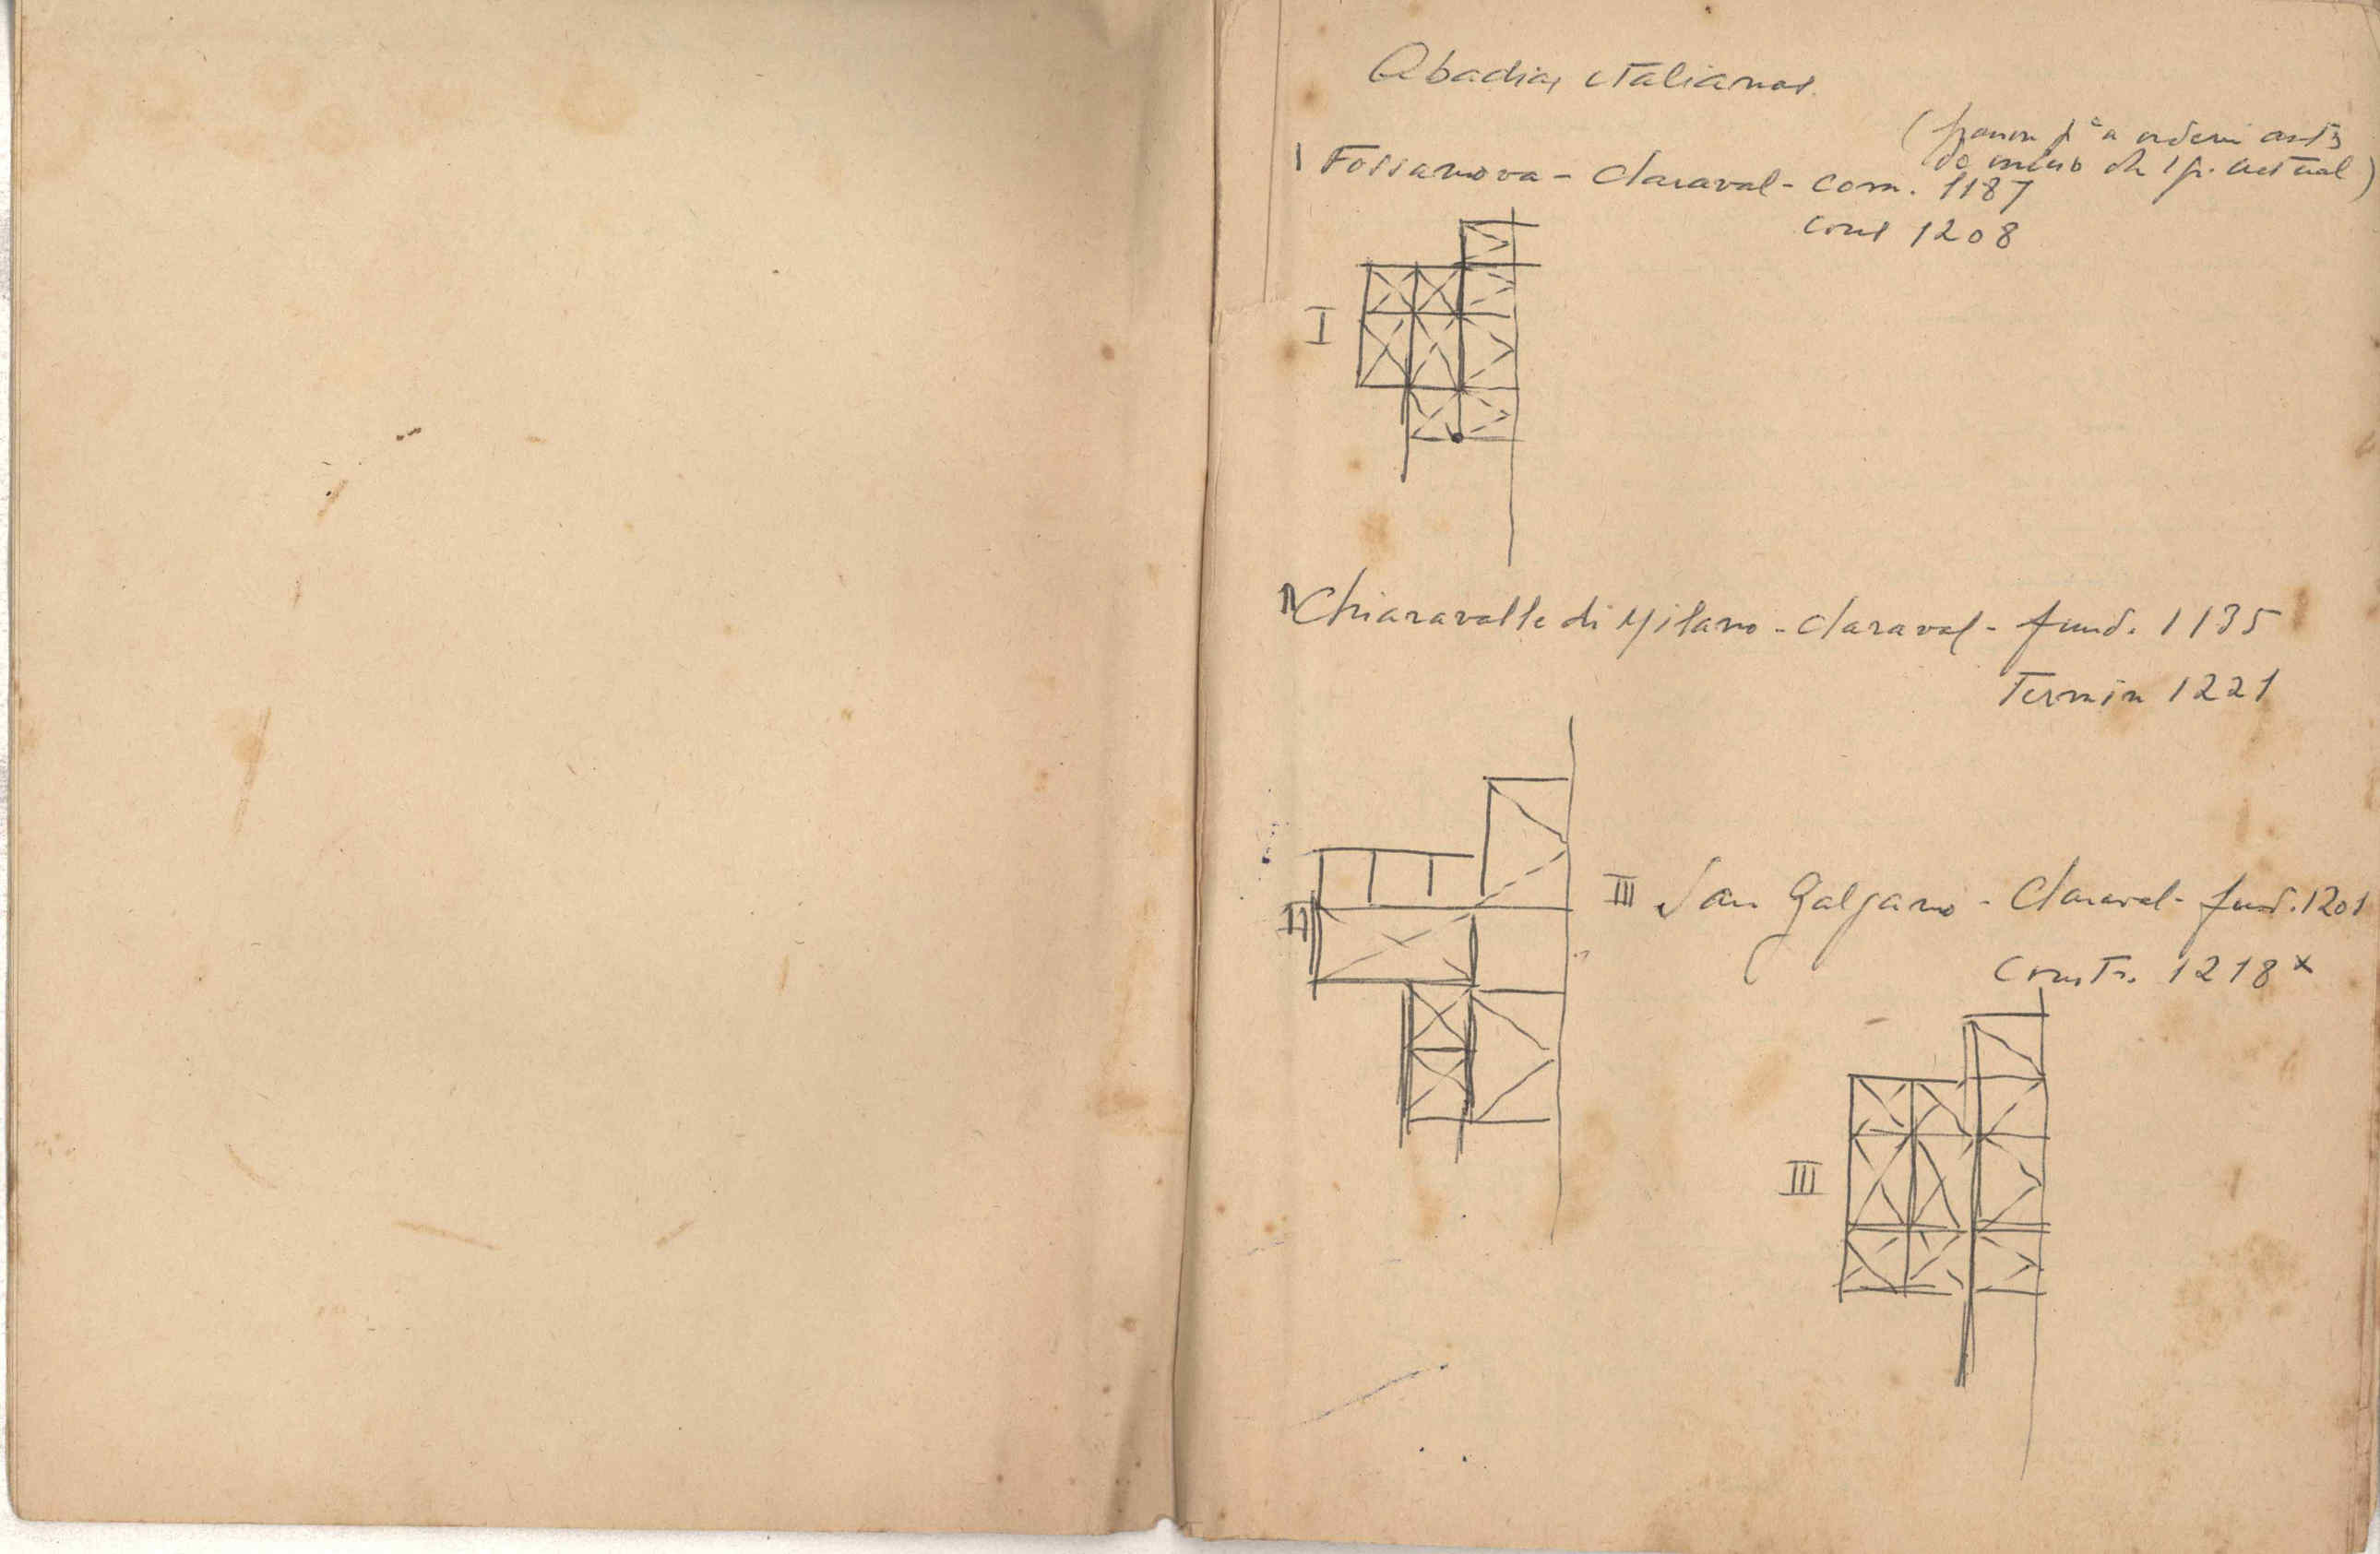 Abadias italianas
(passou pª a ordem antes
do início da igr. actual)
I Fossanova - Claraval - com. 1187
cons 1208
I
II Chiaravalle di Milano - Claraval - fund. 1135
Termin 1221
III San Galgano - Claraval - fund. 1201
Constr. 1218 x
II
III